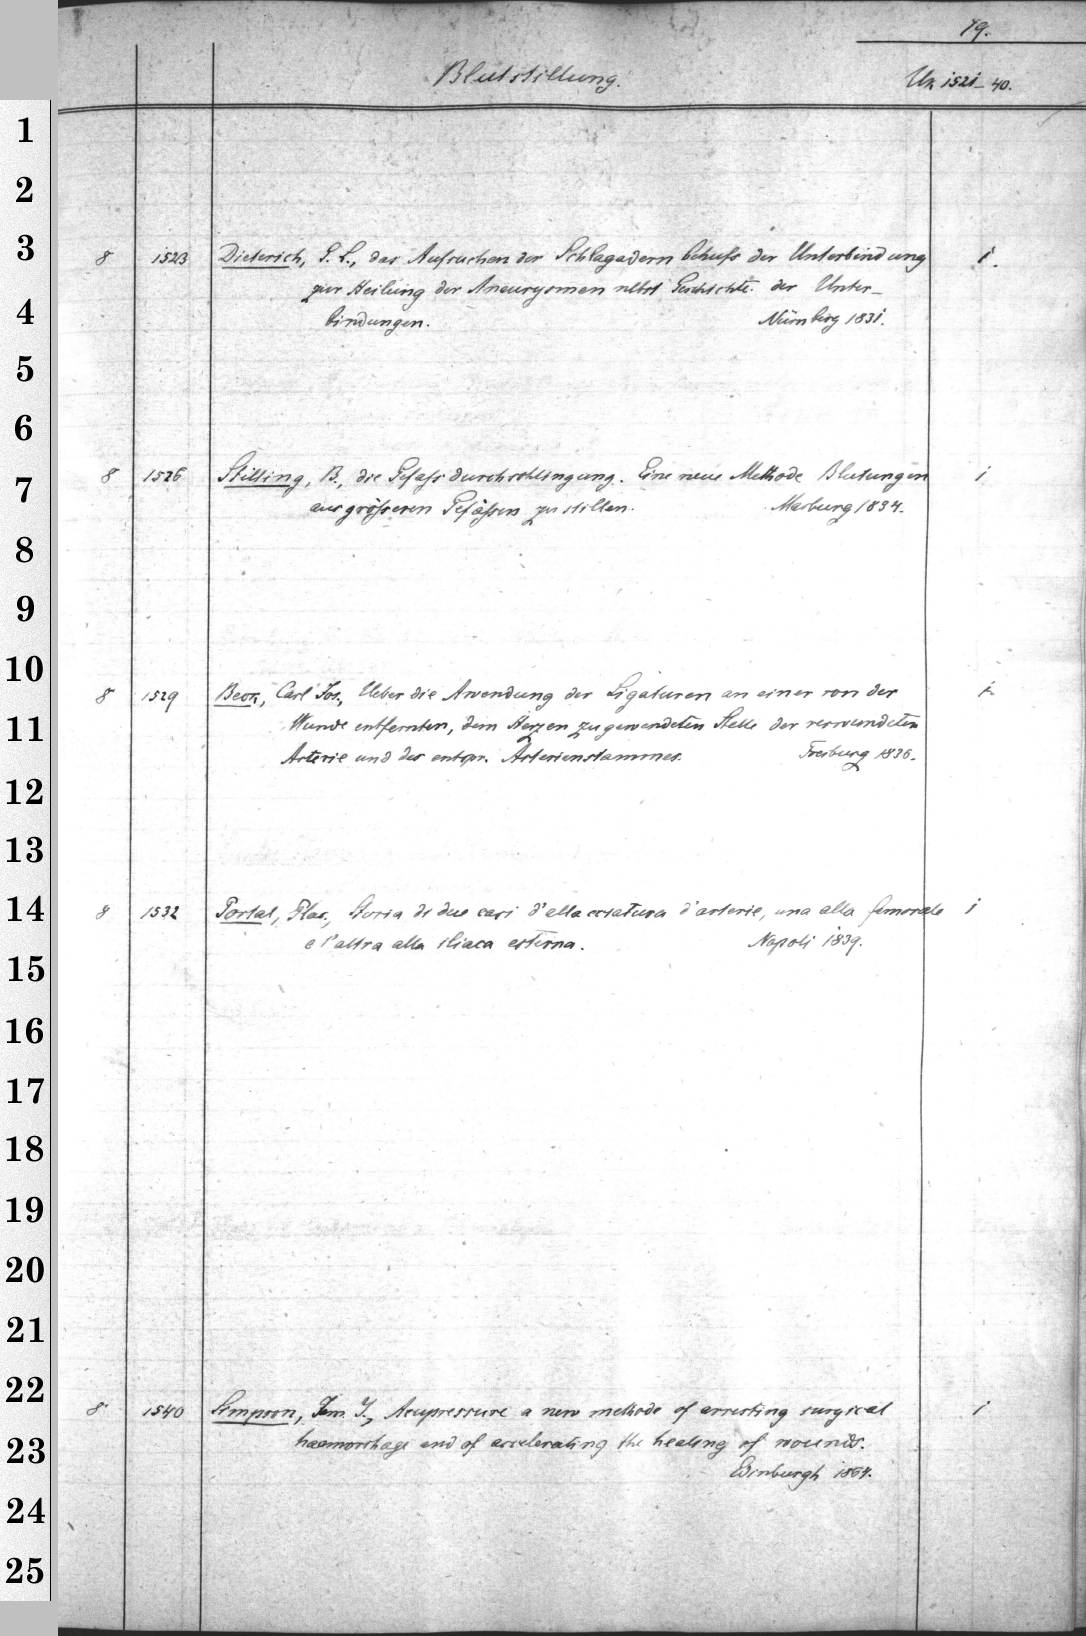 19.
Blutstillung.
Uk 1521-40.
8 1523 Dieterich, G. L., das Aufsuchen der Schlagadern behufs der Unterbindung 1.
zur Heilung der Aneurysmen nebst Geschichte der Unter-
bindungen. Nürnberg 1831.
8 1526 Stilling, B., die Gefässdurchschlingung. Eine neue Methode Blutungen 1
aus grösseren Gefässen zu stillen. Marburg 1834.
8 1529 Beck, Carl Jos., Ueber die Anwendung der Ligaturen an einer von der
Wunde entfernten, dem Herzen zugewendeten Stelle der verwundeten
Arterie und des entspr. Arterienstammes. Freiburg 1836.
8 1532 Portal, Plac., Storia di due casi d'allacciatura d'arterie, una alla femorale 1
e l'altra alla iliaca esterna. Napoli 1839.
8 1540 Simpson, Jam. Y., Acupressure a new methode of arresting surgical 1
haemorrhage and of accelerating the healing of wounds.
Edinburgh 1864.
1
2
3
4
5
6
7
8
9
10
11
12
13
14
15
16
17
18
19
20
21
22
23
24
25